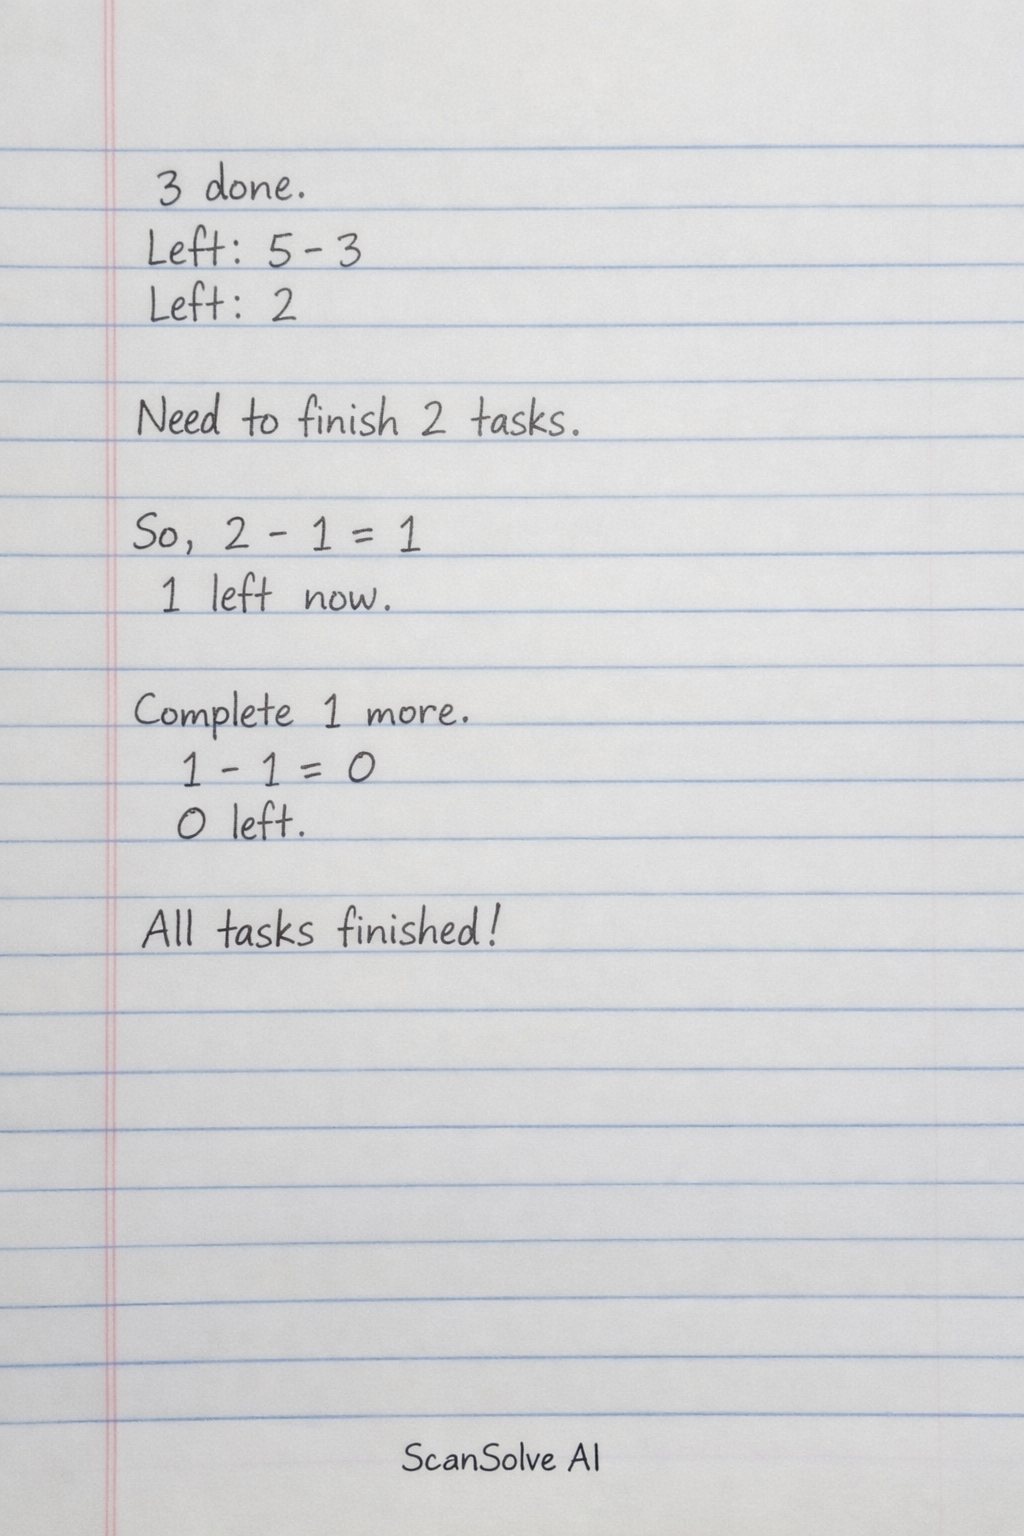 3 done.
Left: 5 - 3
Left: 2
Need to finish 2 tasks.
So, 2 - 1 = 1
1 left now.
Complete 1 more.
1 - 1 = 0
0 left.
All tasks finished!
ScanSolve AI